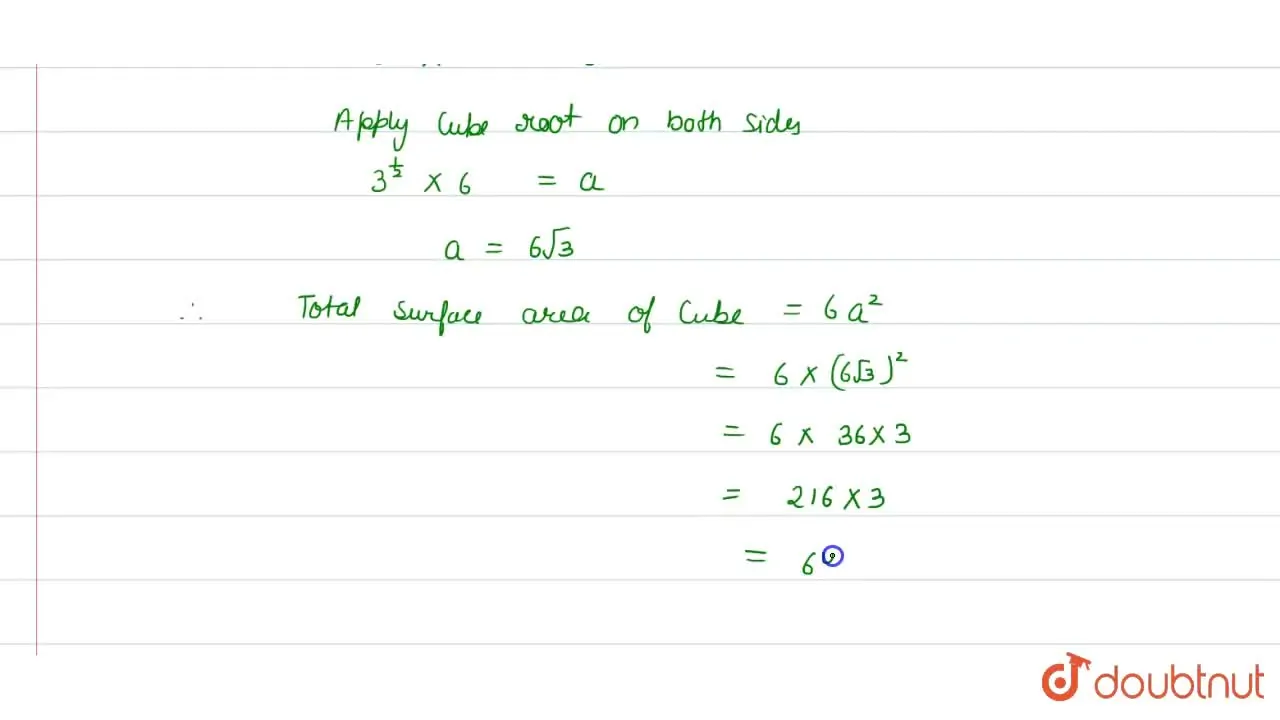 Apply Cube root on both sides
3^½ × 6 = a
a = 6√3
∴ Total surface area of Cube = 6a²
= 6 × (6√3)²
= 6 × 36 × 3
= 216 × 3
= 6
doubtnut